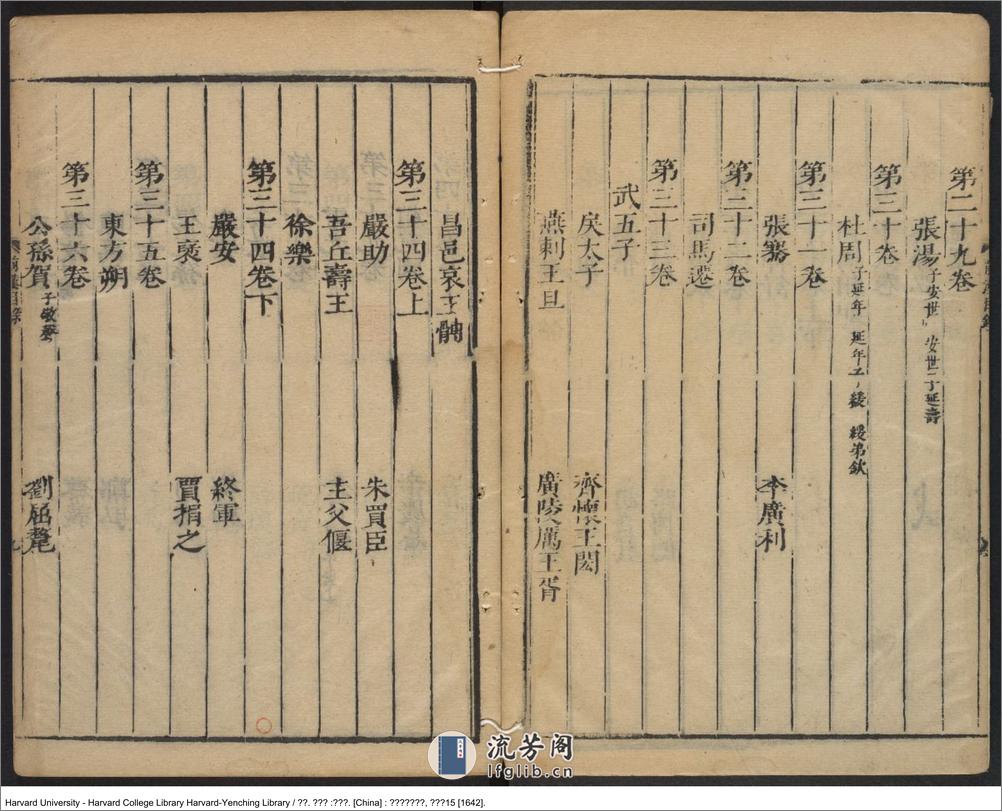 第二十九卷
張湯 子安世 安世子延壽
第三十卷
杜周 子延年 延年子緩 緩弟欽
第三十一卷
張騫 李廣利
第三十二卷
司馬遷
第三十三卷
武五子
戾太子 齊懷王閎
燕剌王旦 廣陵厲王胥
昌邑哀王髆
第三十四卷上
嚴助 朱買臣
吾丘壽王 主父偃
徐樂
第三十四卷下
嚴安 終軍
王褒 賈捐之
第三十五卷
東方朔
第三十六卷
公孫賀 子敬聲 劉屈氂
流芳阁
lfglib.cn
Harvard University - Harvard College Library Harvard-Yenching Library / ??. ??? :???. [China] : ???????, ???15 [1642].